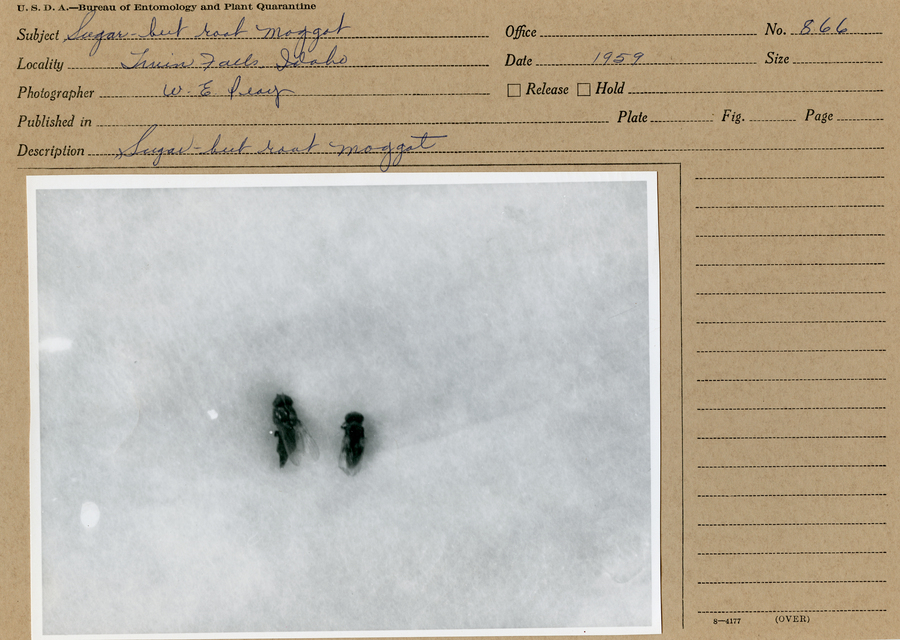 U. S. D. A.—Bureau of Entomology and Plant Quarantine
Subject Sugar-beet root maggot Office No. 866
Locality Twin Falls, Idaho Date 1959 Size
Photographer W. E. Peay ☐ Release ☐ Hold
Published in Plate Fig. Page
Description Sugar-beet root maggot
8—4177 (OVER)